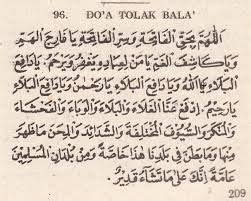 96. DO'A TOLAK BALA'
اَللّٰهُمَّ بِحَقِّ الْفَاتِحَةِ وَسِرِّ الْفَاتِحَةِ يَا فَارِجَ الْهَمِّ
وَيَا كَاشِفَ الْغَمِّ يَا مَنْ لِعِبَادِهِ يَغْفِرُ وَيَرْحَمُ. يَا دَافِعَ
الْبَلَاءِ يَا اَللهُ. وَيَا دَافِعَ الْبَلَاءِ يَا رَحْمٰنُ وَيَا دَافِعَ الْبَلَاءِ
يَا رَحِيْمُ. اِدْفَعْ عَنَّا الْغَلَاءَ وَالْبَلَاءَ وَالْوَبَاءَ وَالْفَحْشَاءَ
وَالْمُنْكَرَ وَالسُّيُوْفَ الْمُخْتَلِفَةَ وَالشَّدَائِدَ وَالْمِحَنَ مَا ظَهَرَ
مِنْهَا وَمَا بَطَنَ فِيْ بَلَدِنَا هٰذَا خَاصَّةً وَمِنْ بُلْدَانِ الْمُسْلِمِيْنَ
عَامَّةً اِنَّكَ عَلٰى مَا تَشَاءُ قَدِيْرٌ.
209